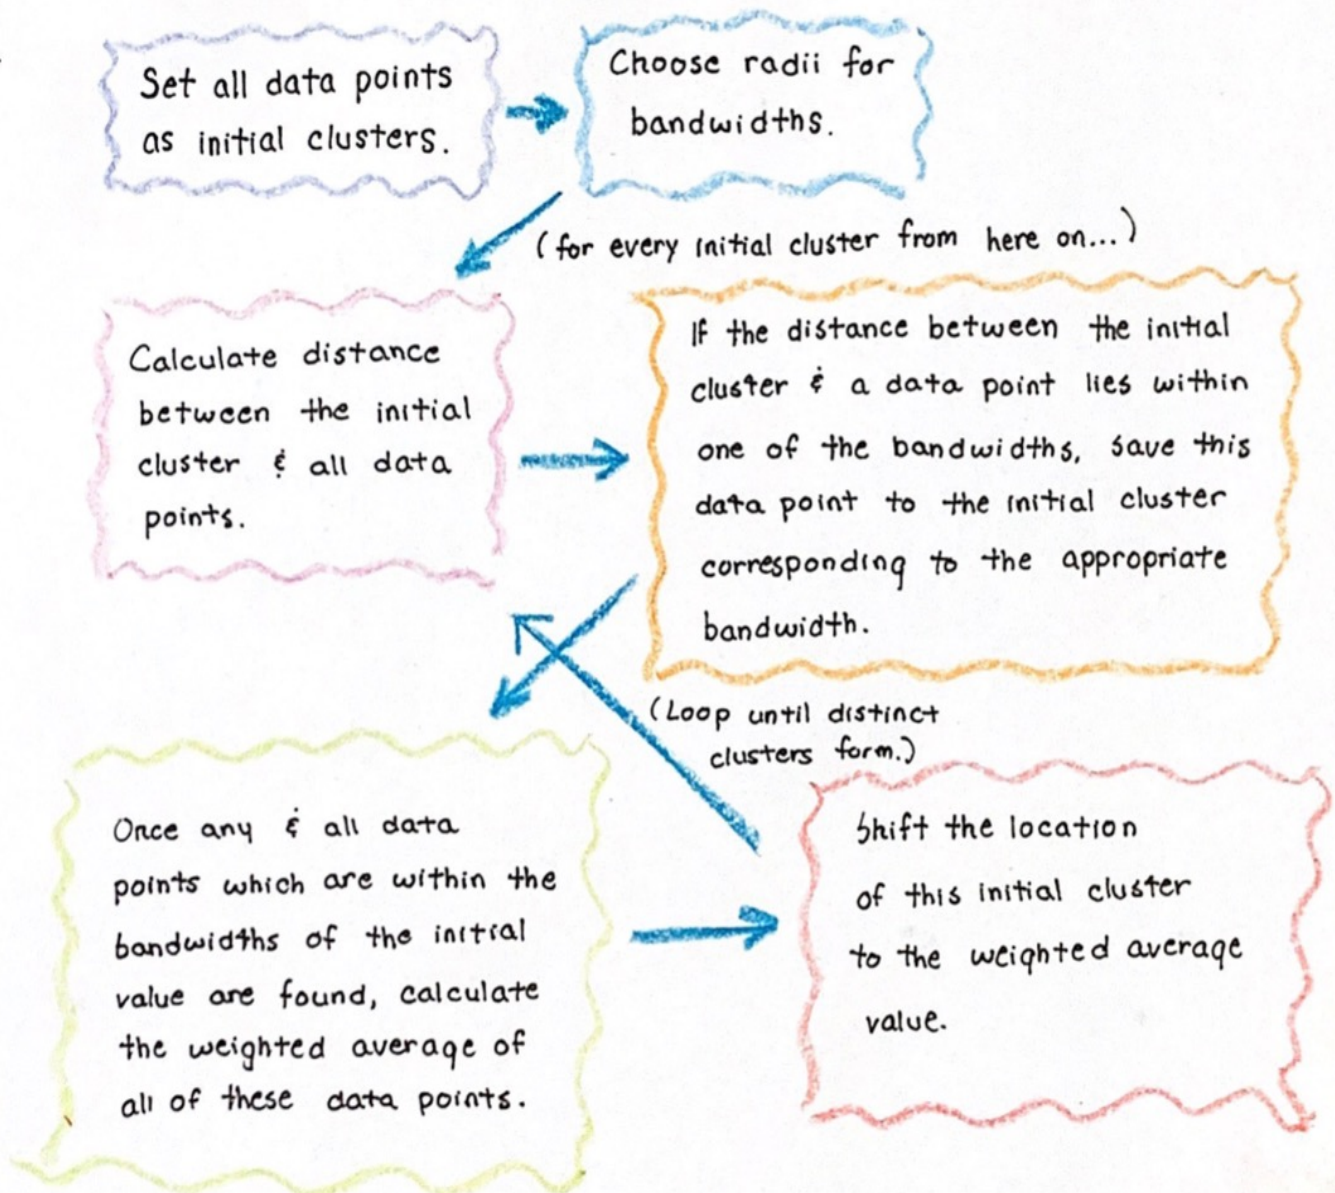 Set all data points
as initial clusters.
Choose radii for
bandwidths.
(for every initial cluster from here on...)
Calculate distance
between the initial
cluster & all data
points.
If the distance between the initial
cluster & a data point lies within
one of the bandwidths, save this
data point to the initial cluster
corresponding to the appropriate
bandwidth.
(Loop until distinct
clusters form.)
Once any & all data
points which are within the
bandwidths of the initial
value are found, calculate
the weighted average of
all of these data points.
Shift the location
of this initial cluster
to the weighted average
value.